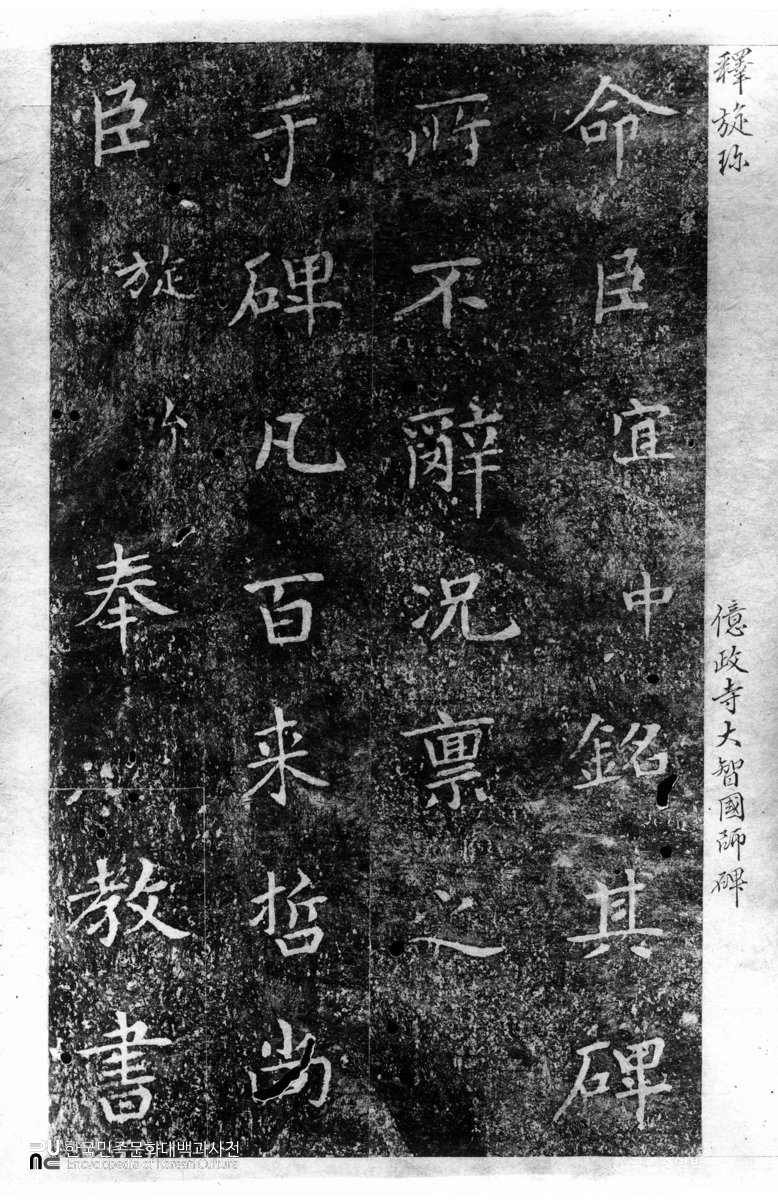 釋旋珎
億政寺大智國師碑
命臣宜中銘其碑
所不辭況禀之
于碑凡百来哲尚
臣旋珎奉教書
한국민족문화대백과사전
Encyclopedia of Korean Culture